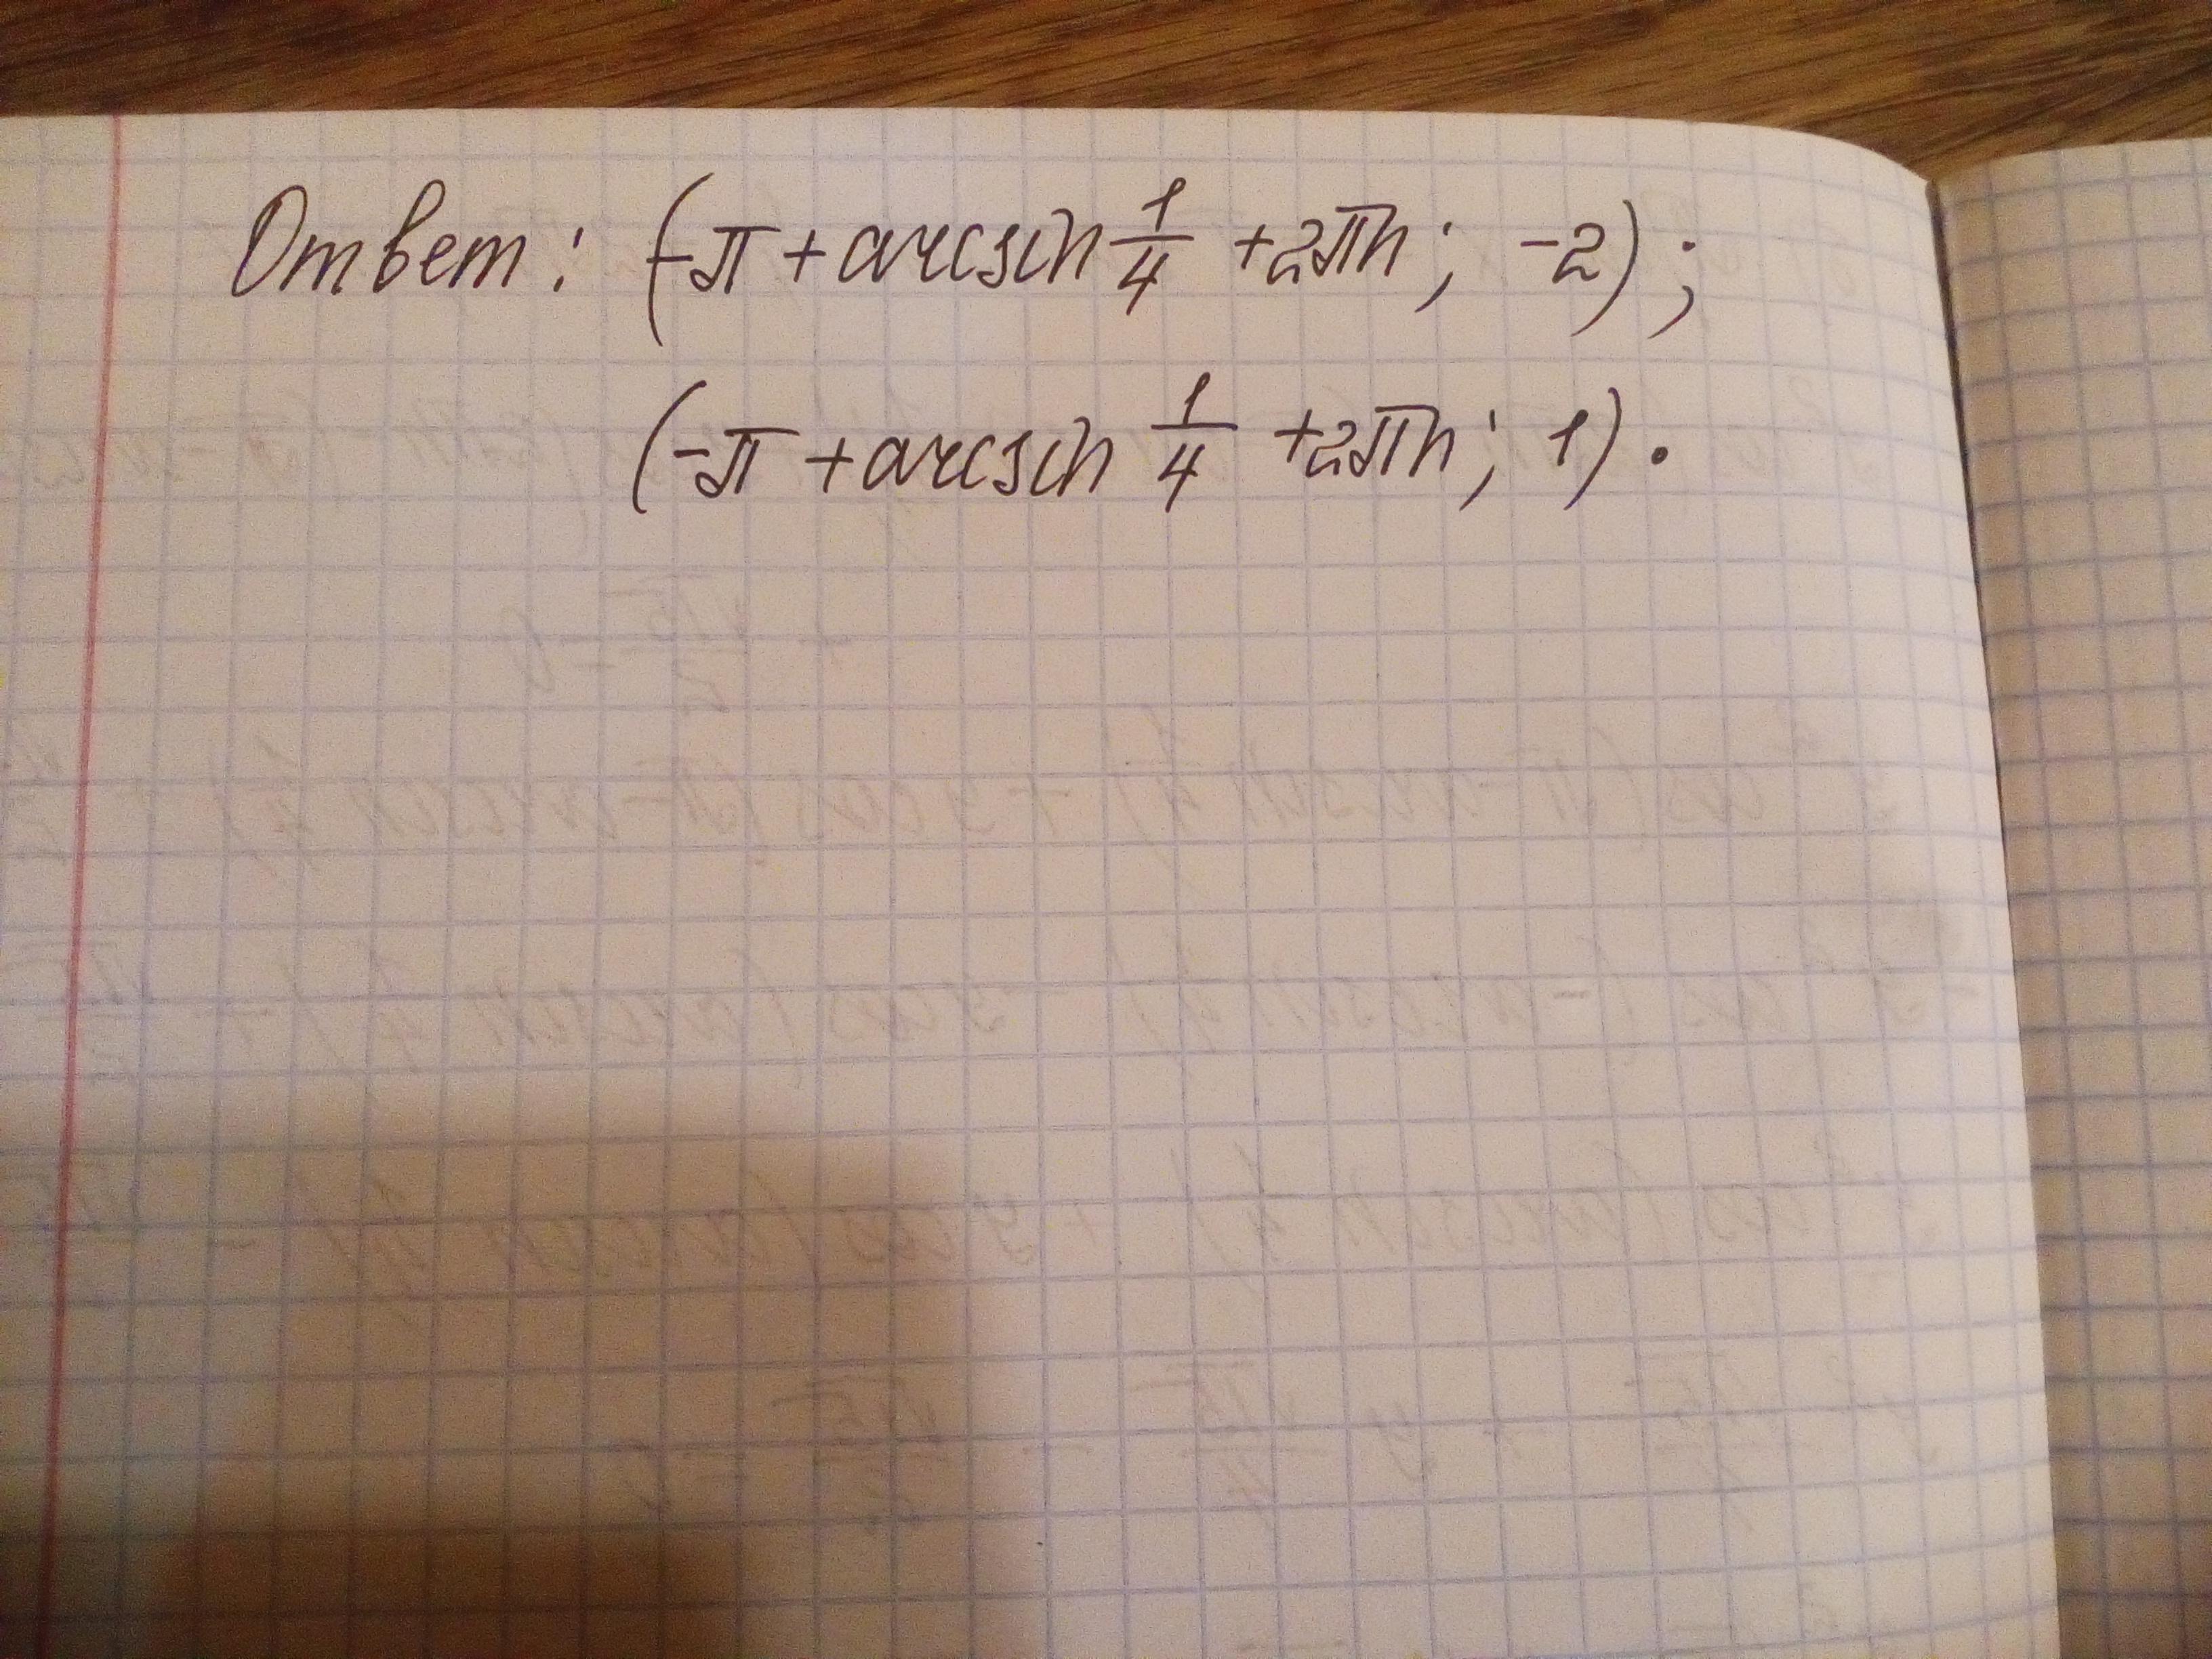 Ответ: (-π + arcsin 1/4 + 2πn; -2);
(-π + arcsin 1/4 + 2πn; 1).